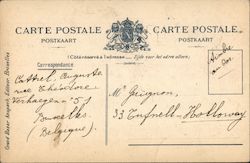 CARTE POSTALE
POSTKAART
CARTE POSTALE
POSTKAART
Côté réservé à l'adresse. — Zijde voor het adres alleen.
Correspondance
Cattel, Auguste
rue Théodore
Verhaegen 151
Bruxelles
(Belgique).
Mr Guignon,
33 Tufnell-
Holloway
Timbre
Grand Bazar Anspach, Éditeur, Bruxelles